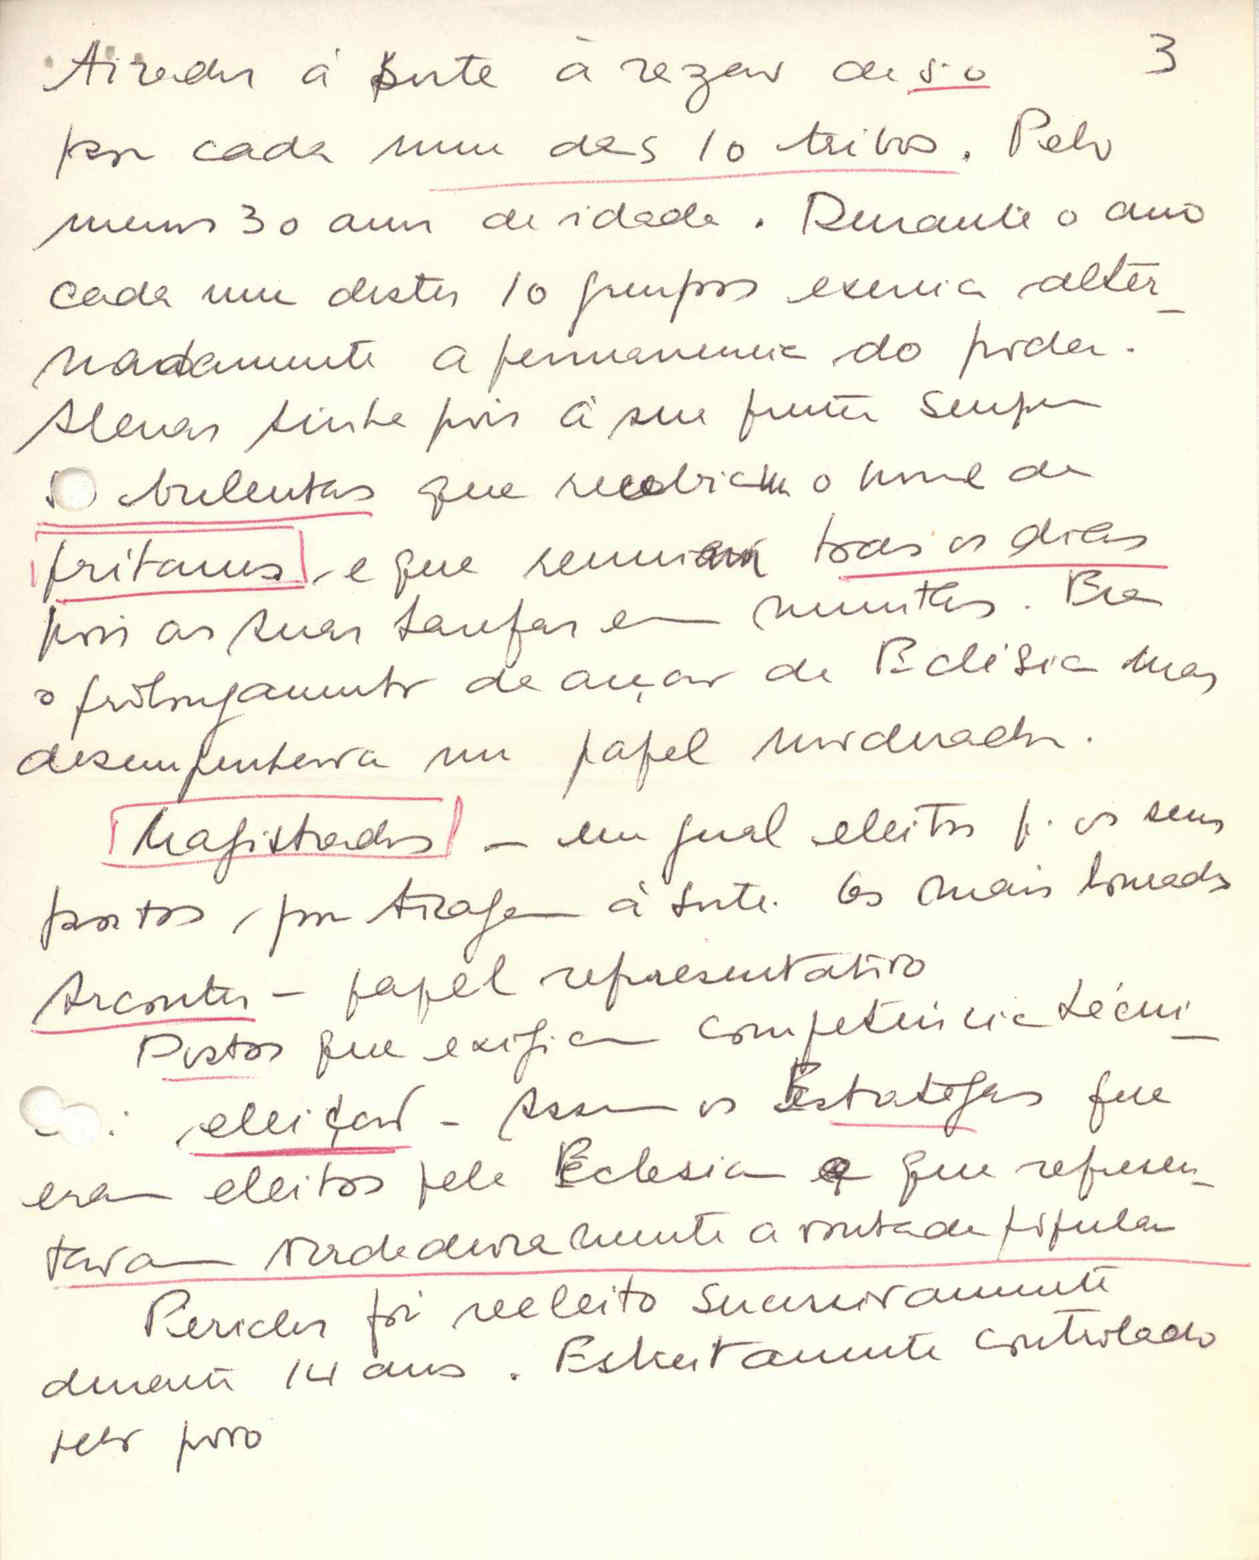 3
Tirados à sorte à razão de 50
por cada uma das 10 tribos. Pelo
menos 30 anos de idade. Durante o ano
cada um destes 10 grupos exercia alter-
nadamente a permanencia do poder.
Atenas tinha pois à sua frente sempre
buleutas que recebiam o nome de
pritanes, e que reuniam todos os dias
pois as suas tarefas eram muitas. Era
o prolongamento da acção da Eclésia mas
desempenhava um papel moderador.
Magistrados – em geral eleitos p. os seus
postos, por tiragem à sorte. Os mais honrados
Arcontes – papel representativo
Postos que exigiam competência técni-
: eleição – Assim os Estrategas que
eram eleitos pela Eclesia e que represen-
tavam verdadeiramente a vontade popular
Pericles foi reeleito sucessivamente
durante 14 anos. Estreitamente controlado
pelo povo